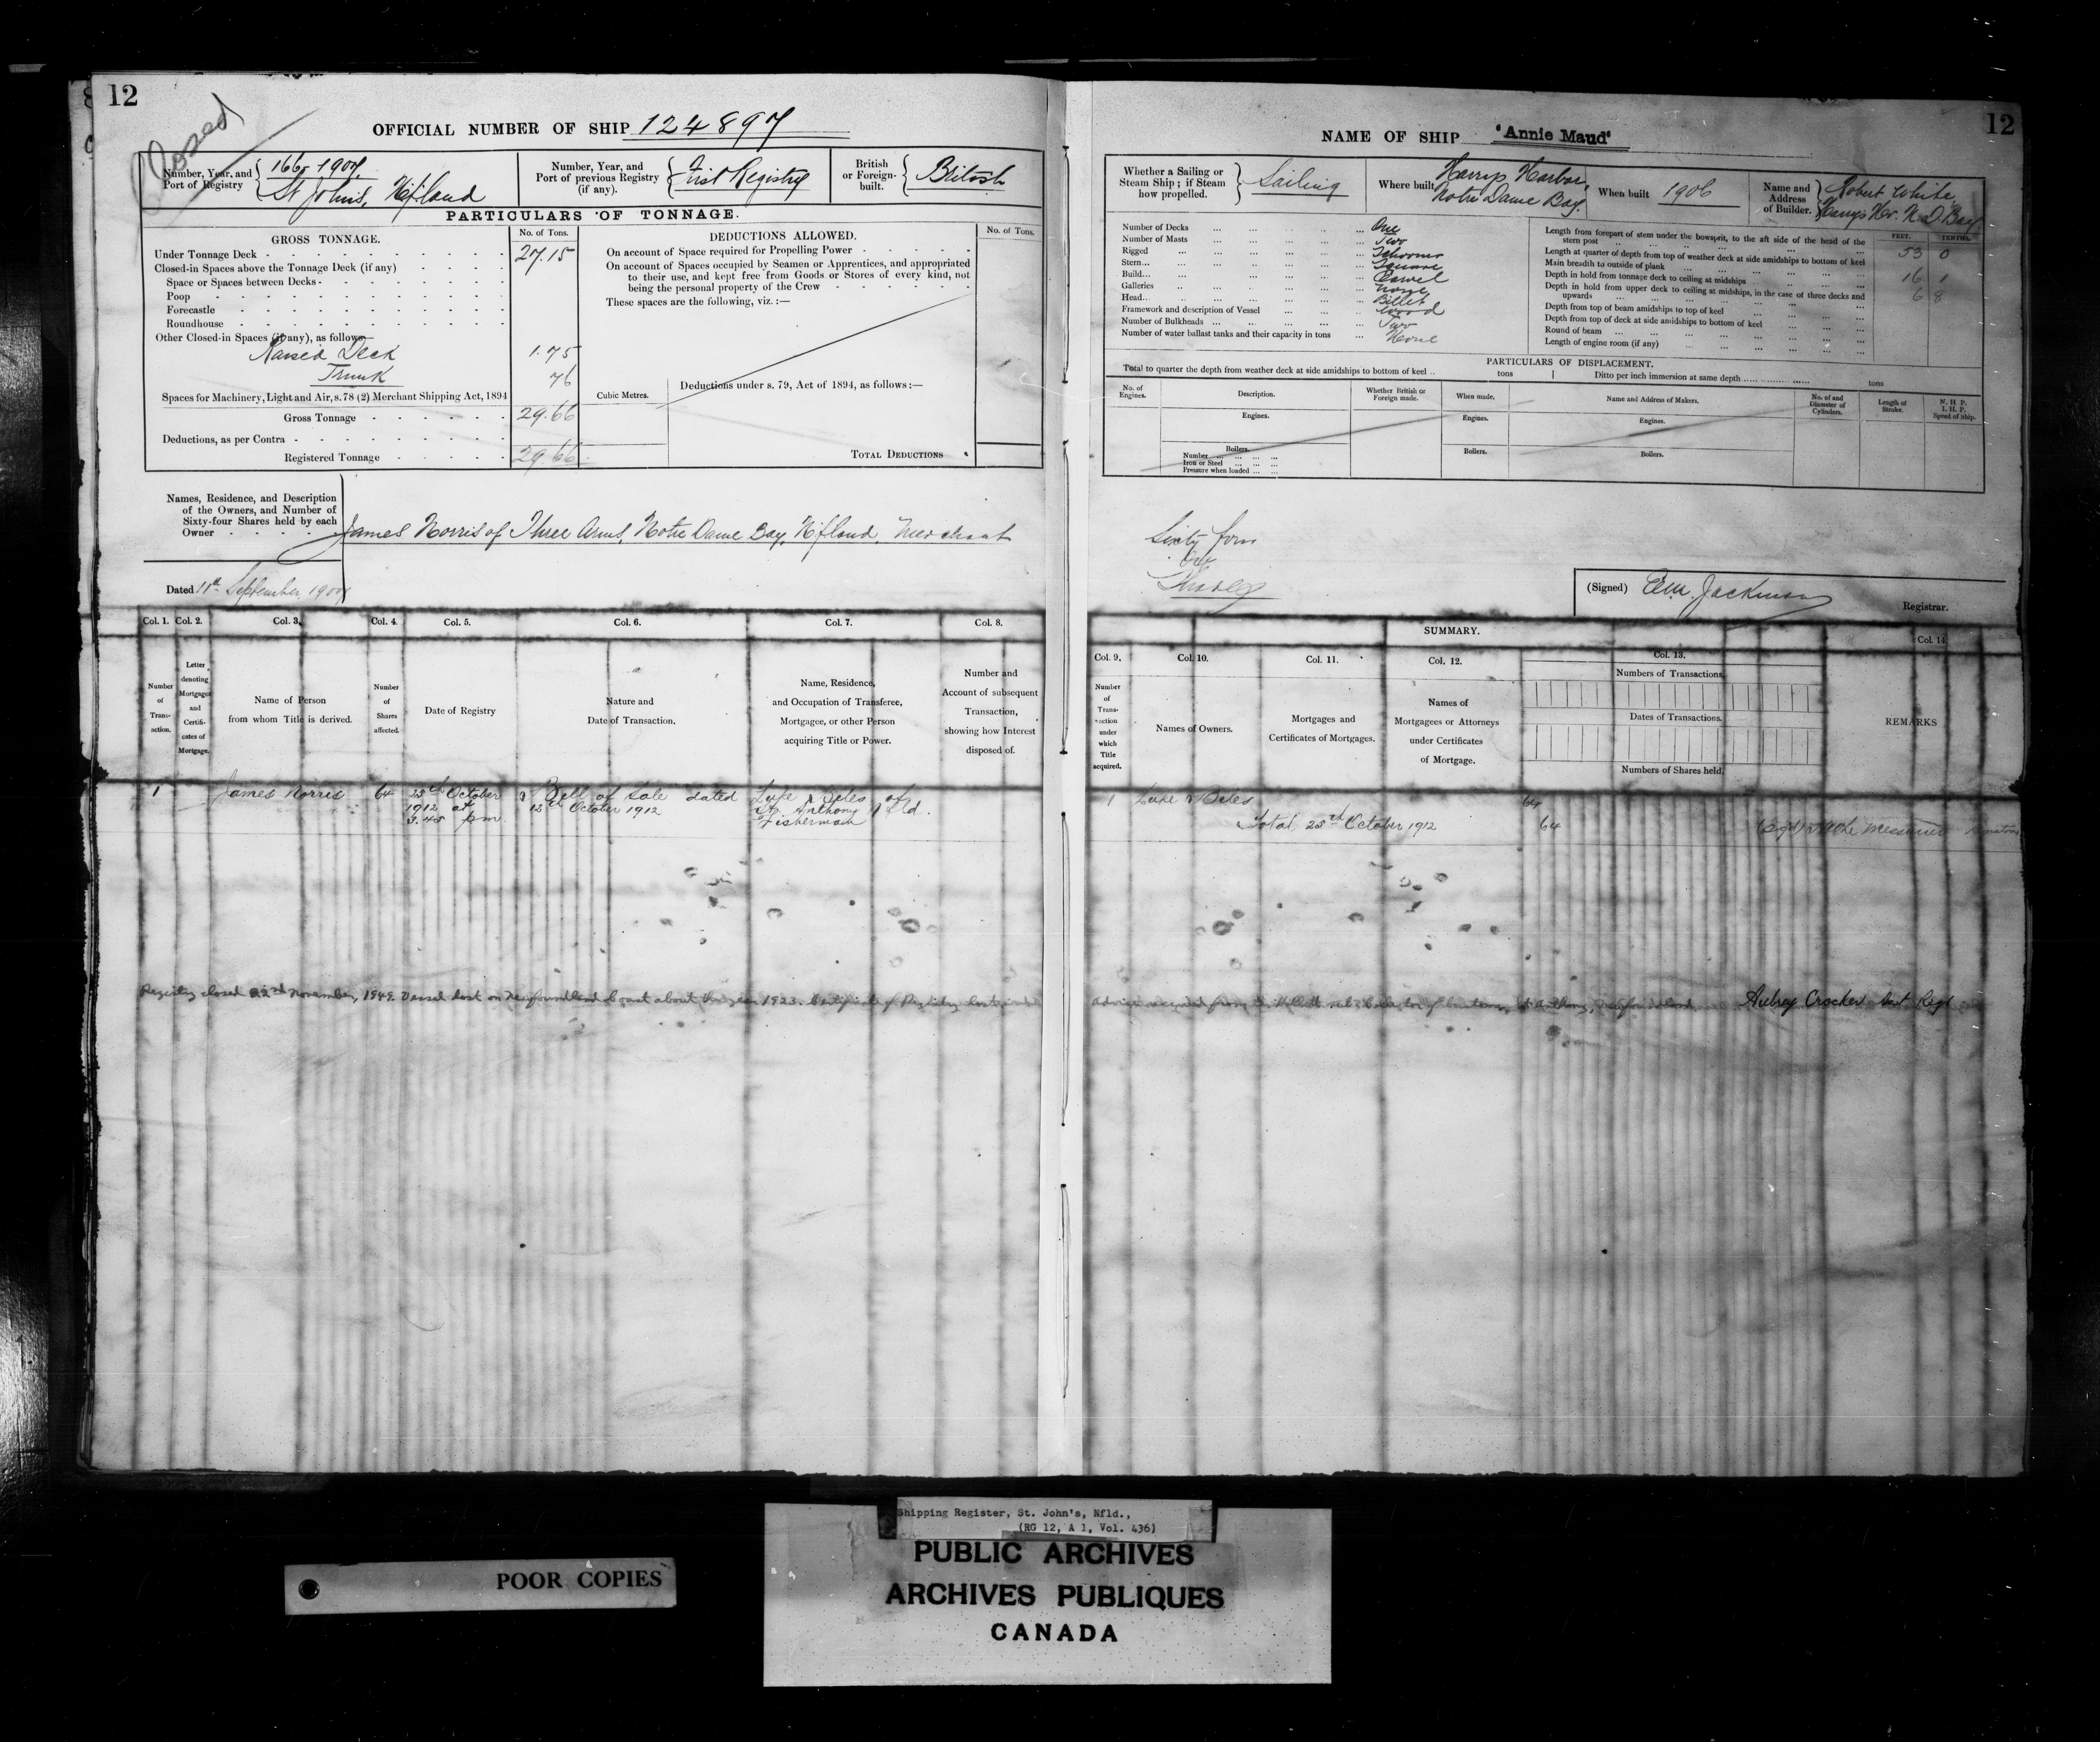 12
Closed
OFFICIAL NUMBER OF SHIP 124897
Number, Year, and Port of Registry { 166, 1907 St Johns, Nfland
Number, Year, and Port of previous Registry (if any). { First Registry
British or Foreign-built. { British
PARTICULARS OF TONNAGE.
GROSS TONNAGE. No. of Tons. DEDUCTIONS ALLOWED. No. of Tons.
Under Tonnage Deck 27.15
Closed-in Spaces above the Tonnage Deck (if any)
Space or Spaces between Decks
Poop
Forecastle
Roundhouse
Other Closed-in Spaces (if any), as follows
Raised Deck 1.75
Trunk 76
Spaces for Machinery, Light and Air, s. 78 (2) Merchant Shipping Act, 1894
Gross Tonnage 29.66
Deductions, as per Contra
Registered Tonnage 29.66
On account of Space required for Propelling Power
On account of Spaces occupied by Seamen or Apprentices, and appropriated
to their use, and kept free from Goods or Stores of every kind, not
being the personal property of the Crew
These spaces are the following, viz. :—
Cubic Metres.
Deductions under s. 79, Act of 1894, as follows :—
TOTAL DEDUCTIONS
Names, Residence, and Description
of the Owners, and Number of
Sixty-four Shares held by each
Owner
James Norris of Three Arms, Notre Dame Bay, Nfland, Merchant
Dated 11th September, 1907
Col. 1. Col. 2. Col. 3. Col. 4. Col. 5. Col. 6. Col. 7. Col. 8.
Number of Transaction.
Letter denoting Mortgages and Certificates of Mortgage.
Name of Person from whom Title is derived.
Number of Shares affected.
Date of Registry
Nature and Date of Transaction.
Name, Residence, and Occupation of Transferee, Mortgagee, or other Person acquiring Title or Power.
Number and Account of subsequent Transaction, showing how Interest disposed of.
1 James Norris 64 October 1912 at 3.45 pm. Bill of Sale dated October 1912 of St Anthony Nfld. Fisherman
Registry closed 22nd November, 1949. Vessel lost on Newfoundland Coast about the year 1923. Certificate of Registry lost
12
NAME OF SHIP "Annie Maud"
Whether a Sailing or Steam Ship ; if Steam how propelled. } Sailing
Where built Harrys Harbor, Notre Dame Bay.
When built 1906
Name and Address of Builder. } Robert White Harrys Hr. N. D. Bay
Number of Decks One
Number of Masts Two
Rigged Schooner
Stern Square
Build Carvel
Galleries None
Head Billet
Framework and description of Vessel Wood
Number of Bulkheads Two
Number of water ballast tanks and their capacity in tons None
FEET. TENTHS.
Length from forepart of stem under the bowsprit, to the aft side of the head of the stern post 53 0
Length at quarter of depth from top of weather deck at side amidships to bottom of keel
Main breadth to outside of plank 16 1
Depth in hold from tonnage deck to ceiling at midships 6 8
Depth in hold from upper deck to ceiling at midships, in the case of three decks and upwards
Depth from top of beam amidships to top of keel
Depth from top of deck at side amidships to bottom of keel
Round of beam
Length of engine room (if any)
PARTICULARS OF DISPLACEMENT.
Total to quarter the depth from weather deck at side amidships to bottom of keel .. tons
Ditto per inch immersion at same depth tons
No. of Engines.
Description.
Whether British or Foreign made.
When made.
Name and Address of Makers.
No. of and Diameter of Cylinders.
Length of Stroke.
N. H. P. I. H. P. Speed of Ship.
Engines. Engines. Engines.
Boilers. Boilers. Boilers.
Number
Iron or Steel
Pressure when loaded
Sixty four
Shares
(Signed) Registrar.
SUMMARY.
Col. 9. Col. 10. Col. 11. Col. 12. Col. 13. Col. 14.
Number of Transaction under which Title acquired.
Names of Owners.
Mortgages and Certificates of Mortgages.
Names of Mortgagees or Attorneys under Certificates of Mortgage.
Numbers of Transactions.
Dates of Transactions.
Numbers of Shares held.
REMARKS
1 64
Total October 1912 64
Aubrey Crocker Regr
Shipping Register, St. John's, Nfld.,
(RG 12, A 1, Vol. 436)
POOR COPIES
PUBLIC ARCHIVES
ARCHIVES PUBLIQUES
CANADA